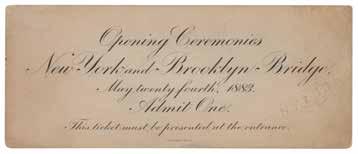 Opening Ceremonies
New York and Brooklyn Bridge,
May twenty fourth, 1883.
Admit One.
This ticket must be presented at the entrance.